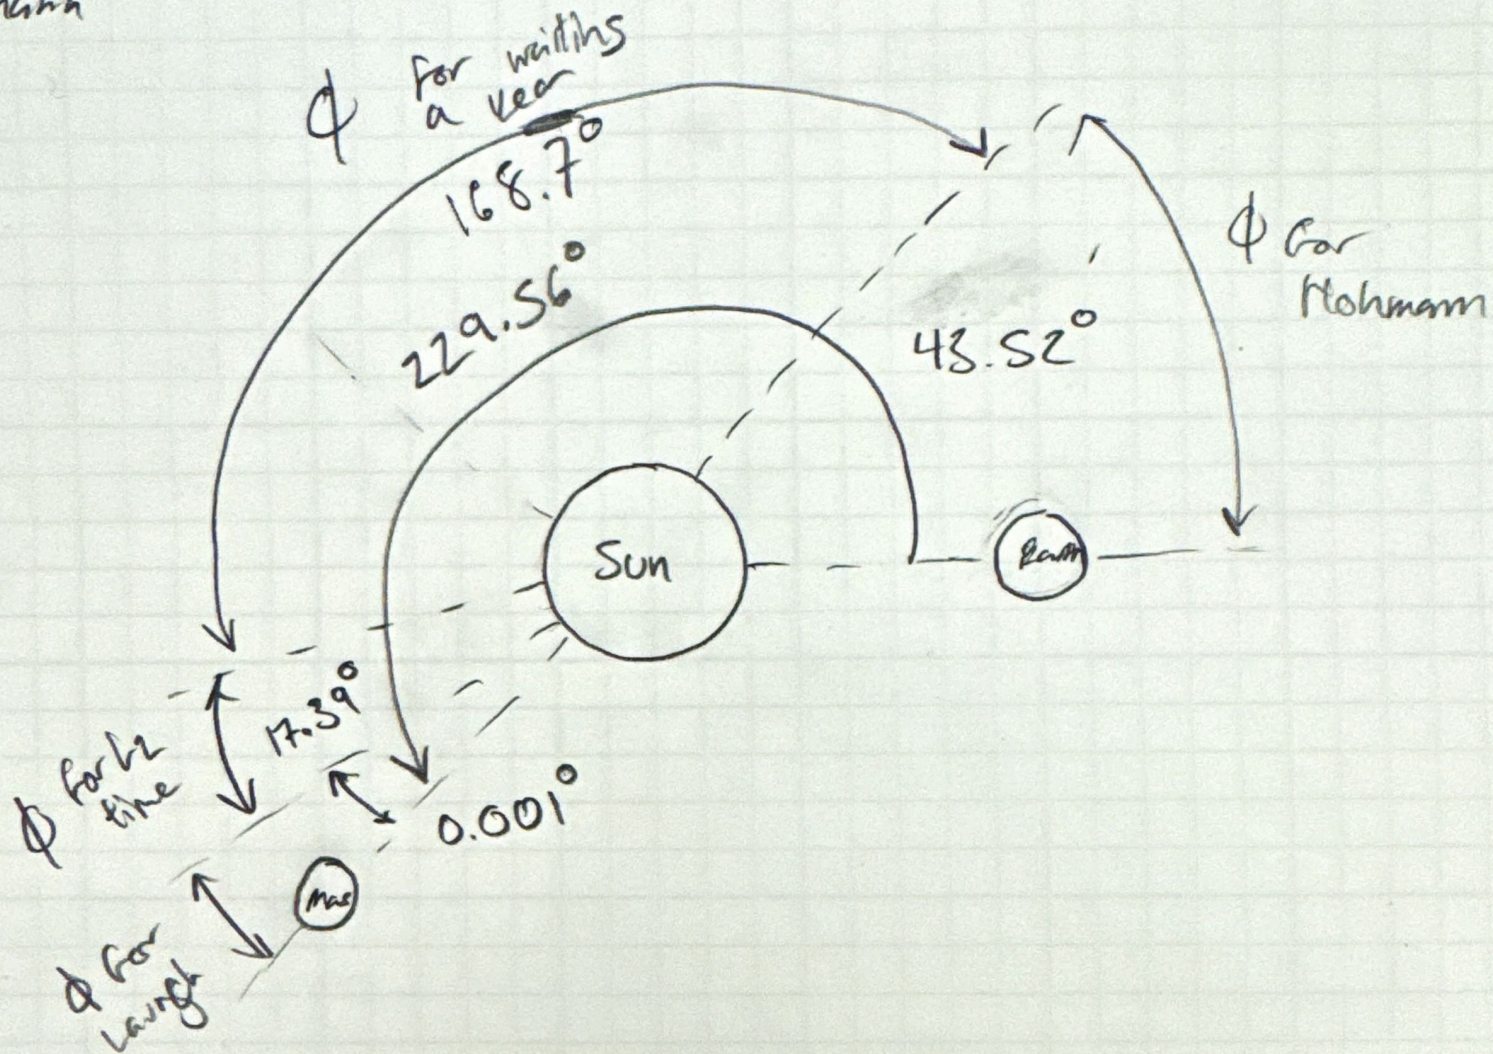 ϕ for waiting
a year
168.7°
229.56°
43.52°
ϕ for
Hohmann
Sun
Earth
17.39°
ϕ for L2
time
0.001°
Mars
ϕ for
Launch